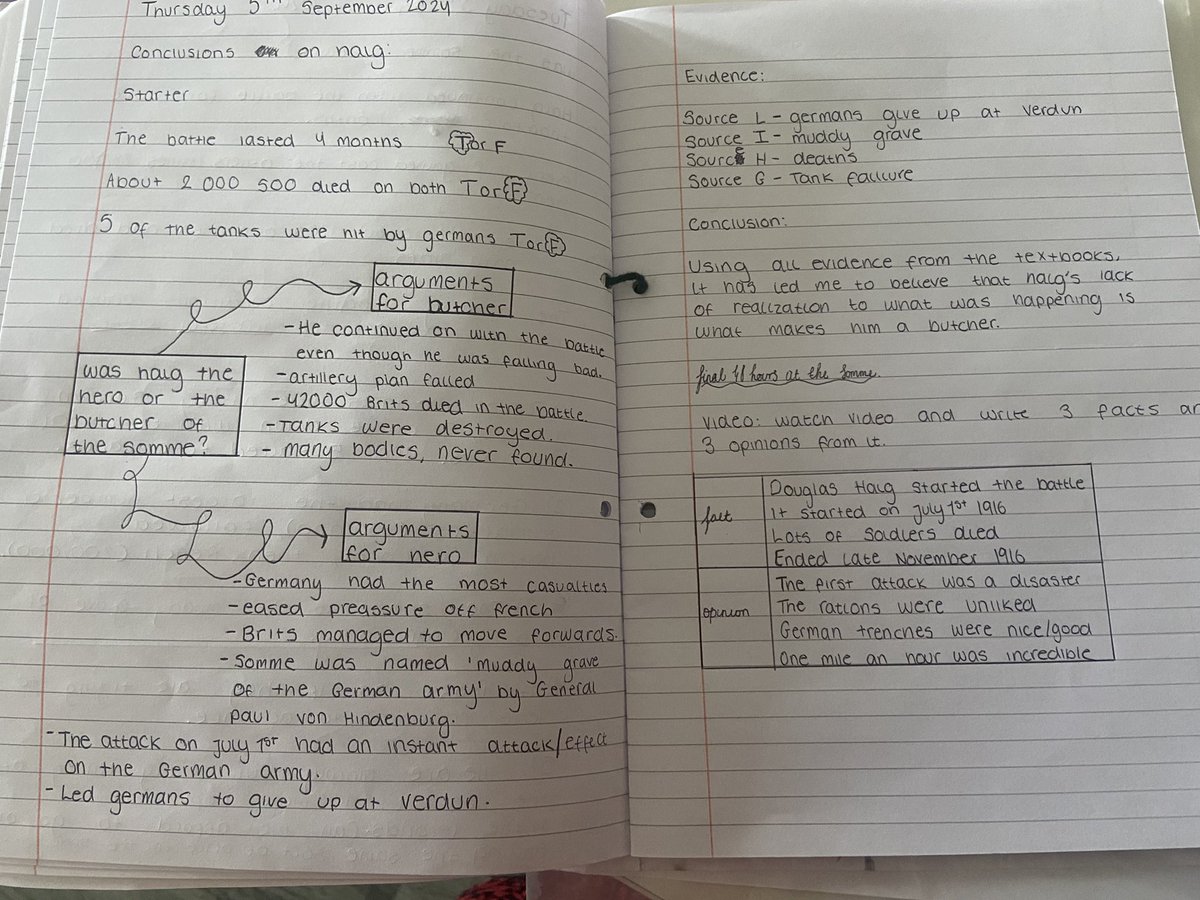 Thursday 5th September 2024
Conclusions on haig:
Starter
The battle lasted 4 months T or F
About 2 000 500 died on both T or F
5 of the tanks were hit by germans T or F
arguments
for butcher
- He continued on with the battle
even though he was failing bad.
- artillery plan failed
- 42000 Brits died in the battle.
- Tanks were destroyed.
- many bodies, never found.
was haig the
hero or the
butcher of
the somme?
arguments
for hero
- Germany had the most casualties
- eased preassure off french
- Brits managed to move forwards.
- Somme was named 'muddy grave
of the German army' by General
Paul von Hindenburg.
- The attack on July 1st had an instant attack/effect
on the German army.
- Led germans to give up at verdun.
Evidence:
Source L - germans give up at verdun
Source I - muddy grave
Source H - deaths
Source G - Tank failure
Conclusion:
Using all evidence from the textbooks,
it has led me to believe that haig's lack
of realization to what was happening is
what makes him a butcher.
final 41 hours at the Somme.
video: watch video and write 3 facts an
3 opinions from it.
fact
Douglas Haig started the battle
It started on July 1st 1916
Lots of soldiers died
Ended late November 1916
opinion
The first attack was a disaster
The rations were unliked
German trenches were nice/good
One mile an hour was incredible